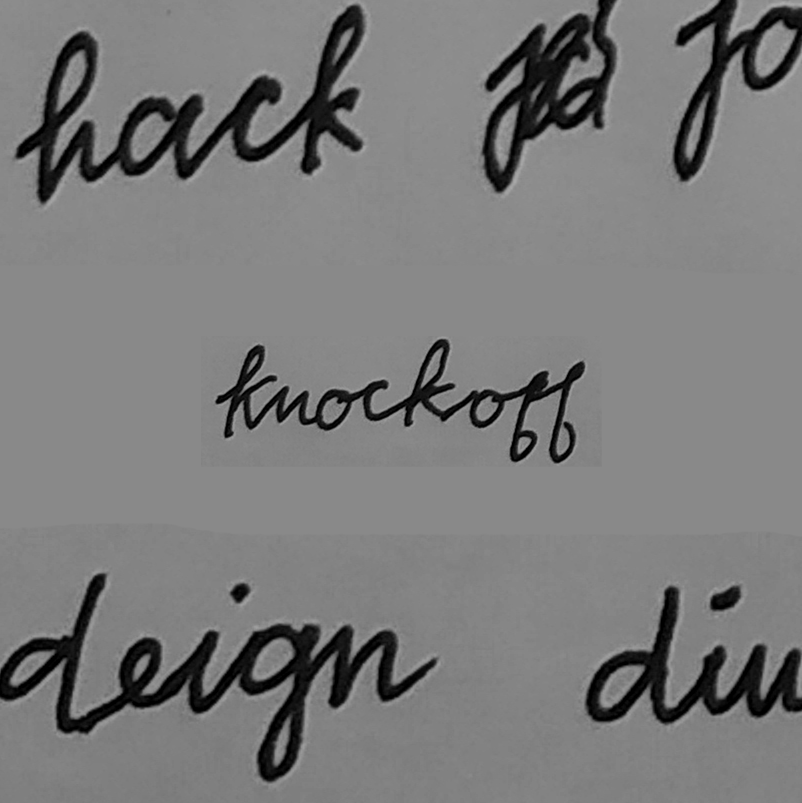 hack jo
knockoff
deign